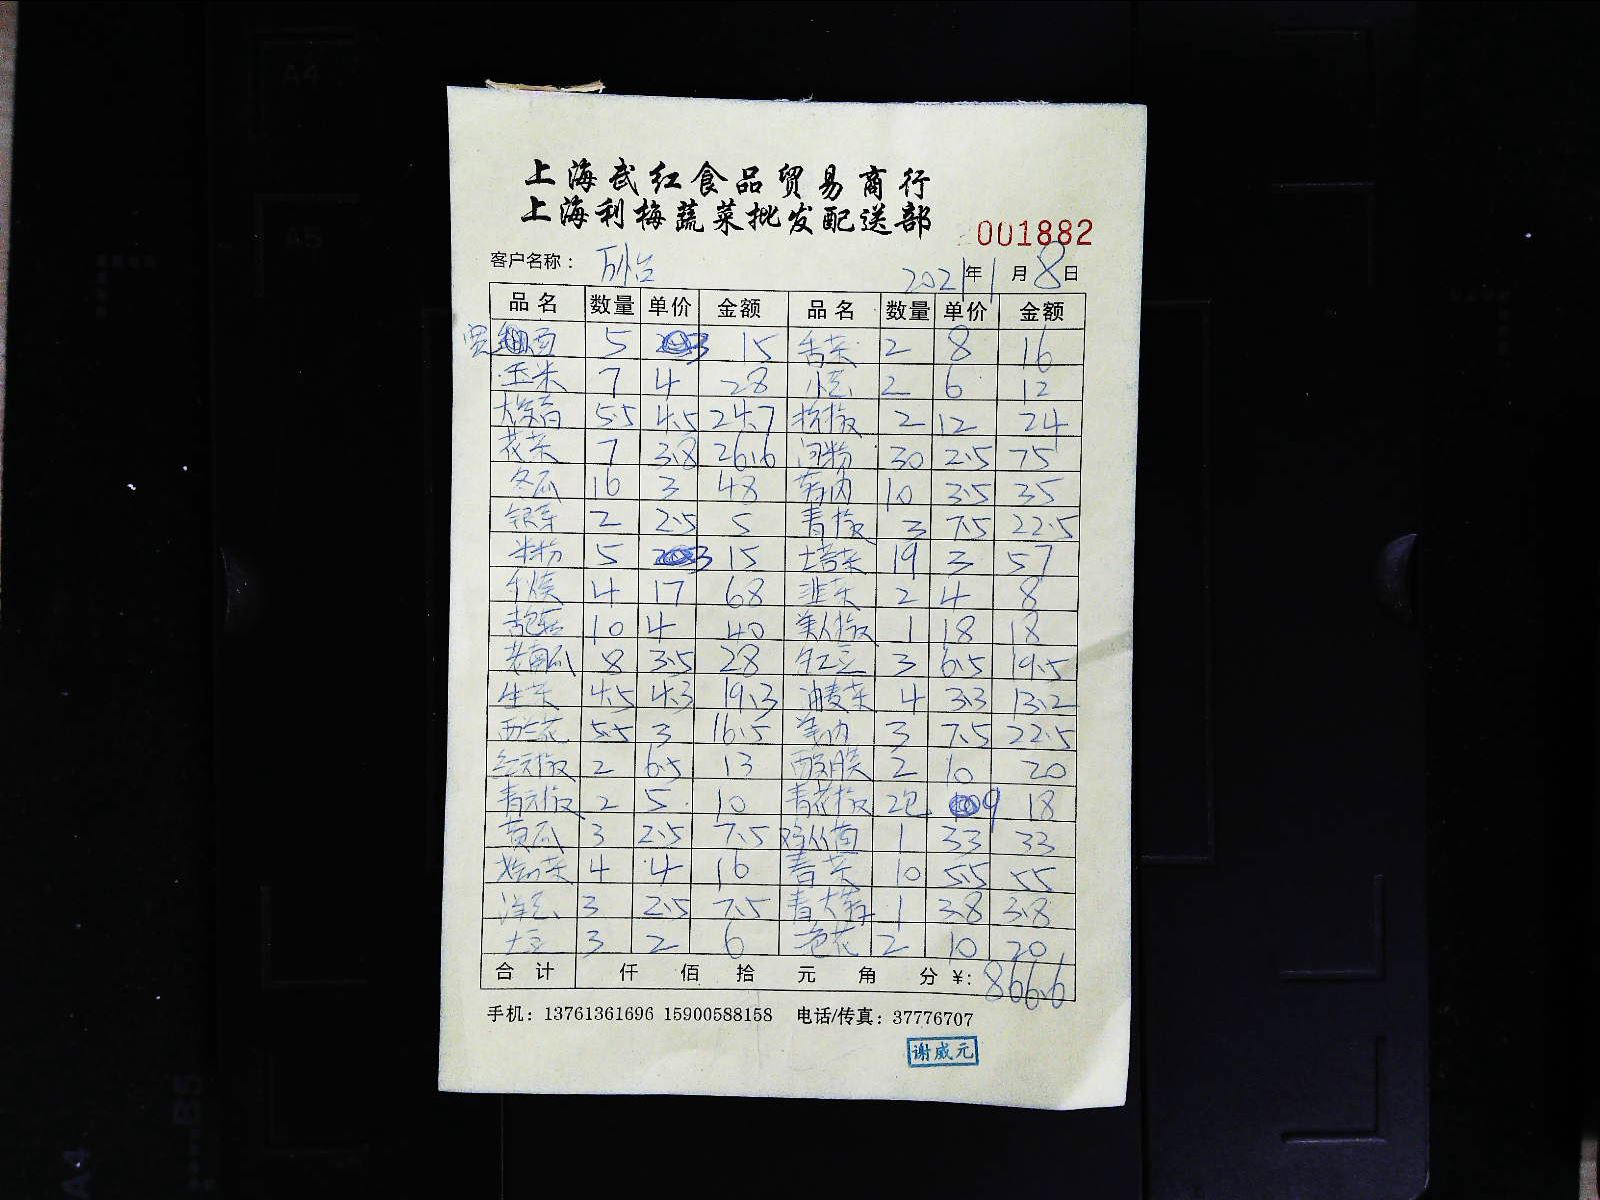 上海武红食品贸易商行
上海利梅蔬菜批发配送部
001882
客户名称： 2021年1月8日
品名 数量 单价 金额 品名 数量 单价 金额
5 3 15 香菜 2 8 16
玉米 7 4 28 小葱 2 6 12
5.5 4.5 24.7 2 12 24
花菜 7 3.8 26.6 河粉 30 2.5 75
冬瓜 16 3 48 10 3.5 35
银芽 2 2.5 5 青椒 3 7.5 22.5
米粉 5 3 15 19 3 57
4 17 68 韭菜 2 4 8
10 4 40 美人椒 1 18 18
老南瓜 8 3.5 28 红豆 3 6.5 19.5
生菜 4.5 4.3 19.3 油麦菜 4 3.3 13.2
西兰花 5.5 3 16.5 3 7.5 22.5
2 6.5 13 2 10 20
2 5 10 青花椒 2包 9 18
黄瓜 3 2.5 7.5 1 33 33
4 4 16 10 5.5 55
洋葱 3 2.5 7.5 1 3.8 3.8
土豆 3 2 6 2 10 20
合计 仟 佰 拾 元 角 分 ¥: 866.6
手机：13761361696 15900588158 电话/传真：37776707
谢威元